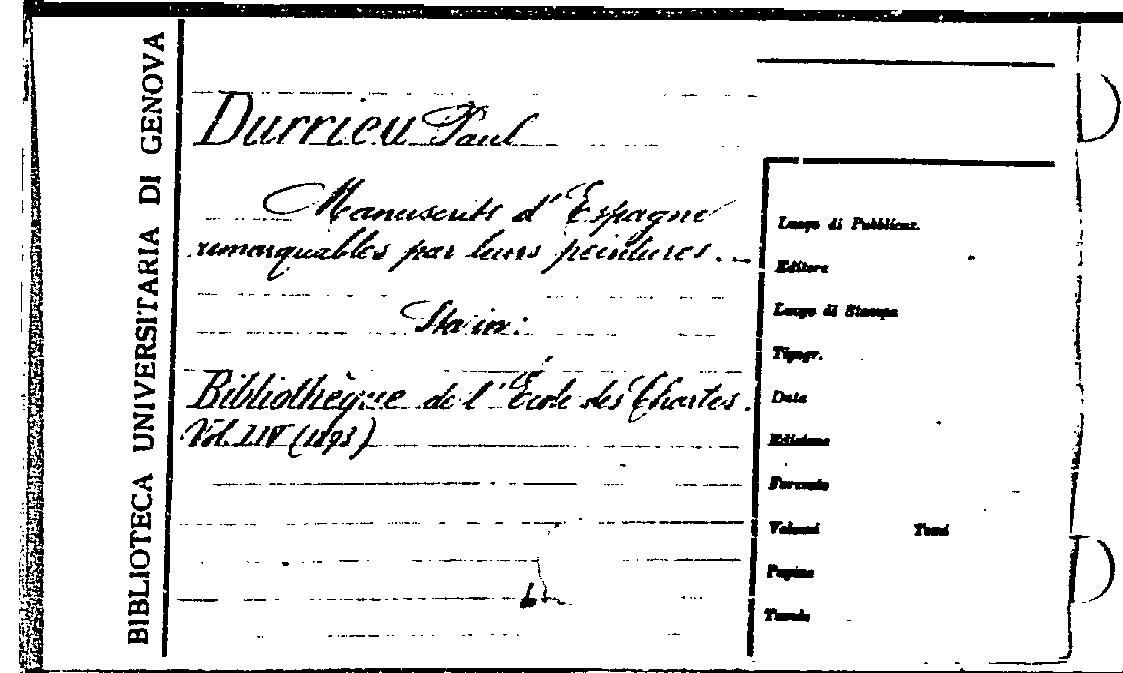 BIBLIOTECA UNIVERSITARIA DI GENOVA
Durrieu Paul
Manuscrits d'Espagne
remarquables par leurs peintures.
Sta in:
Bibliothèque de l'École des Chartes.
Vol. LIV (1893)
Luogo di Pubblicaz.
Editore
Luogo di Stampa
Tipogr.
Data
Edizione
Formato
Volumi Tomi
Pagine
Tavole